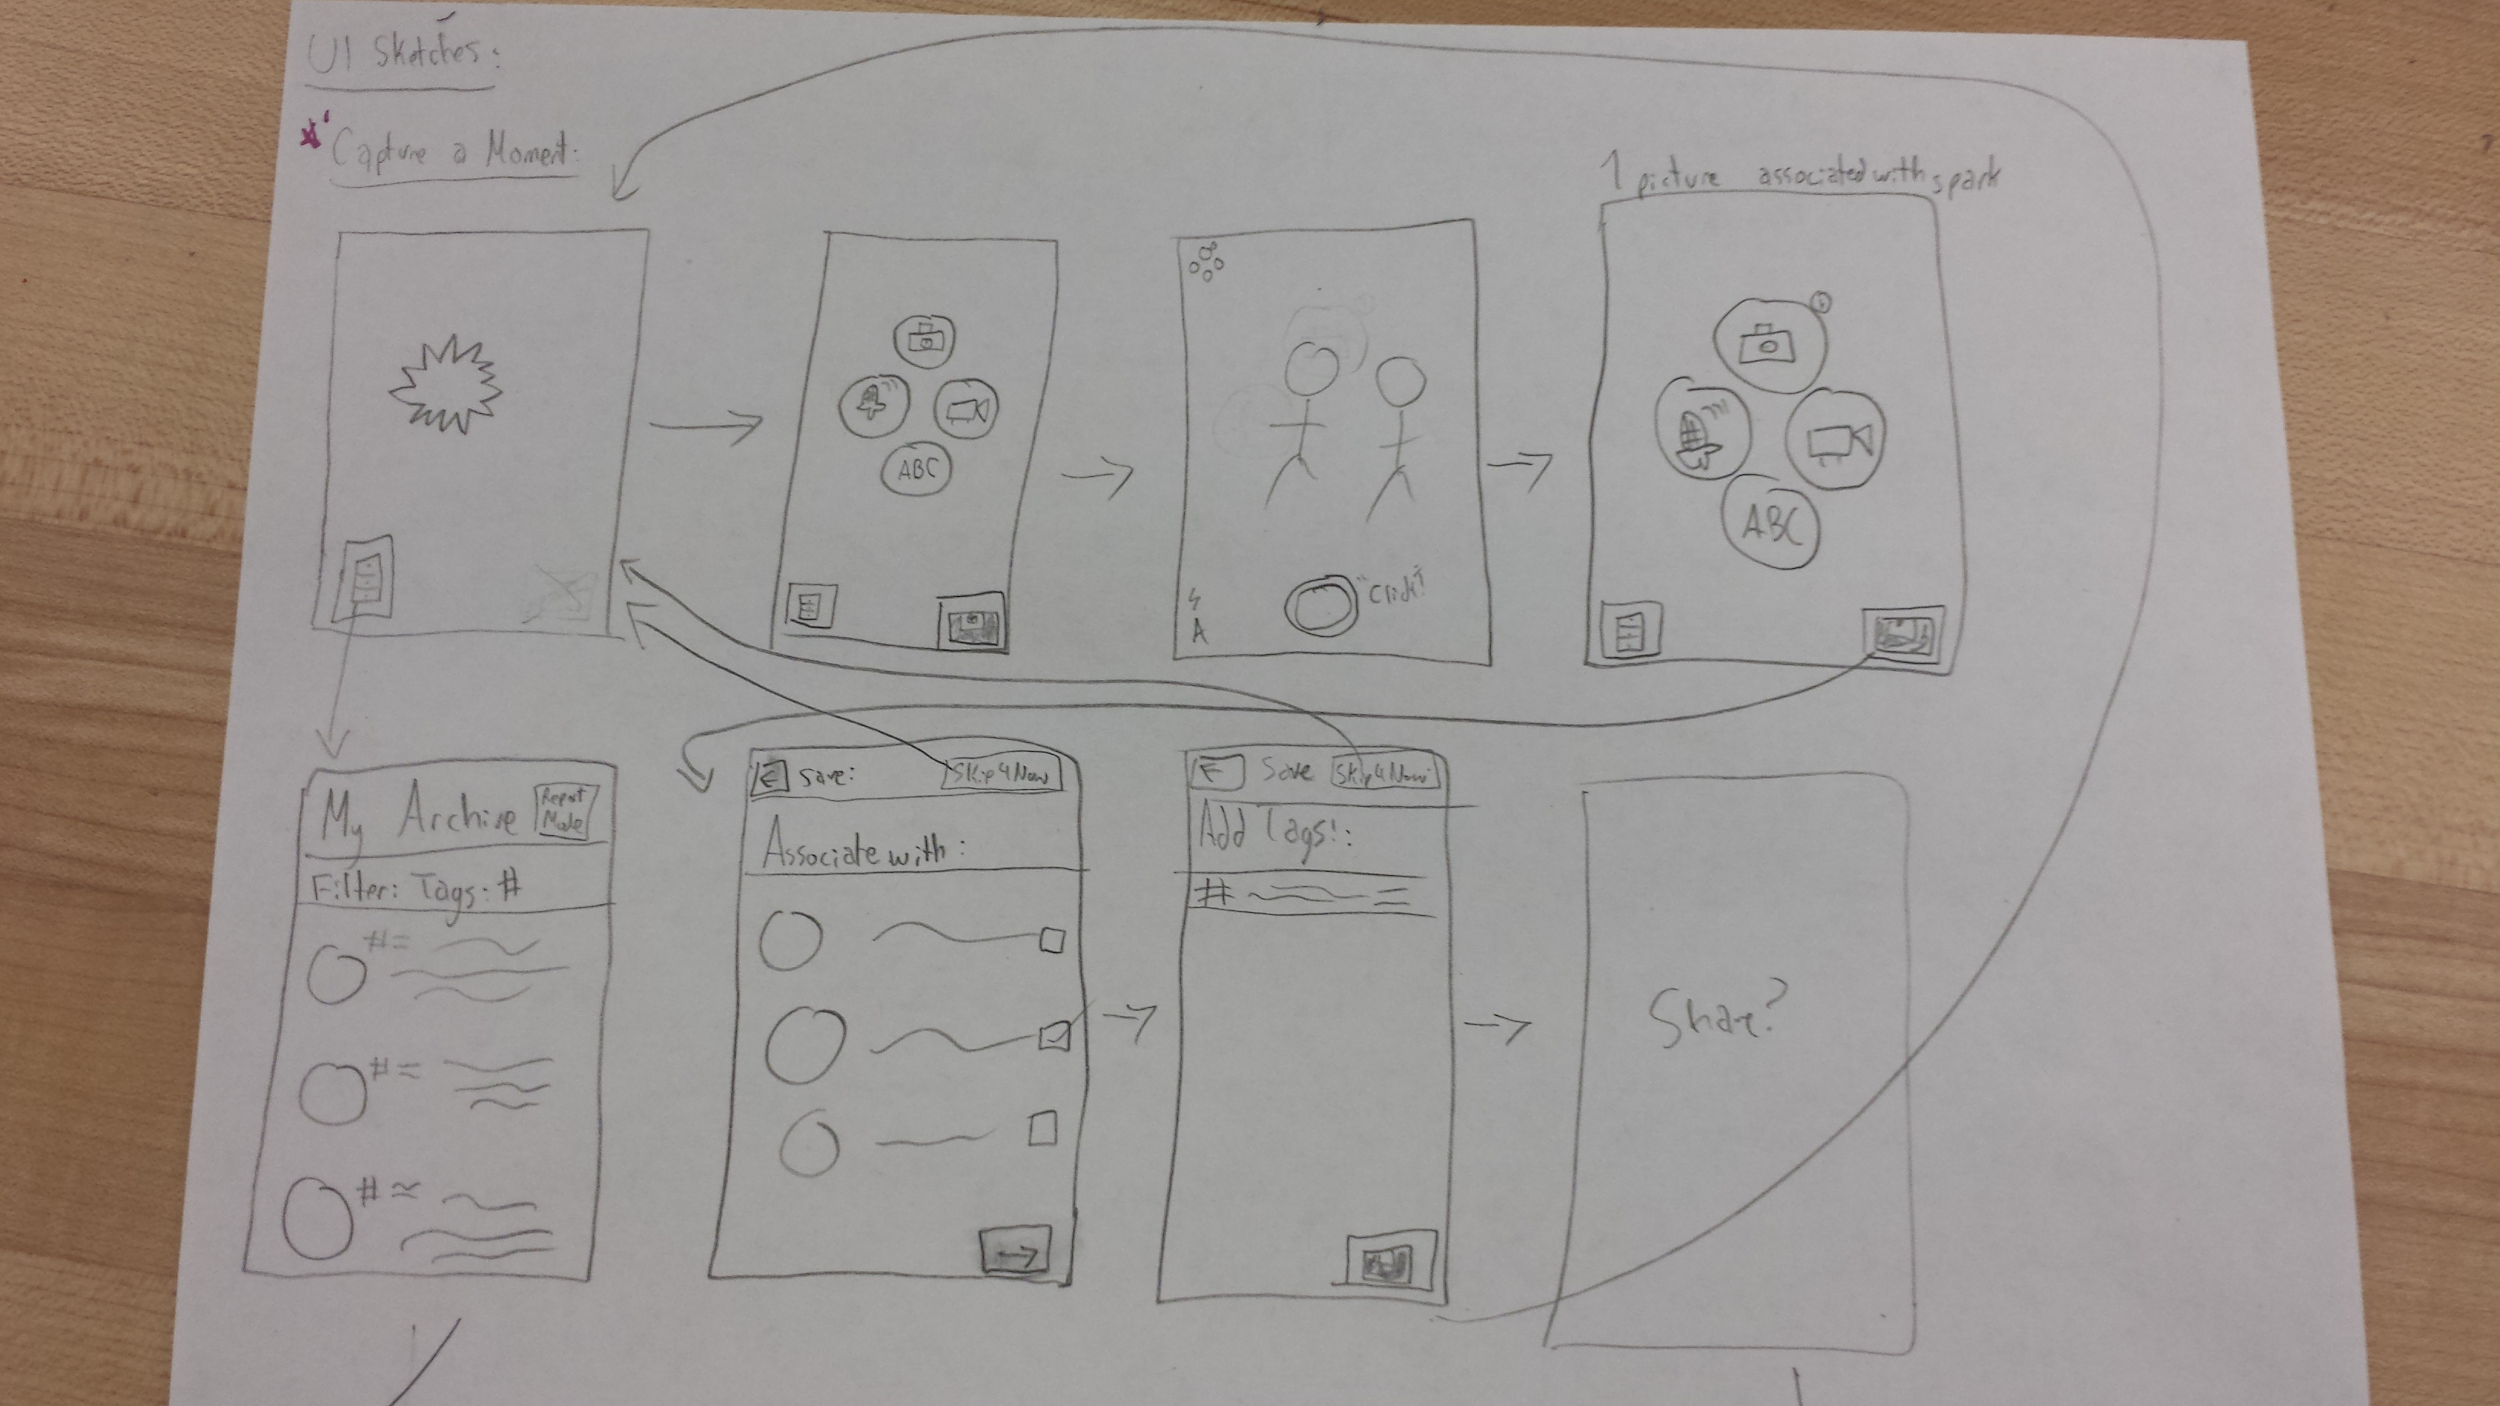 UI Sketches:
Capture a Moment:
1 picture associated with spark
ABC
"Click!"
A
ABC
My Archive
Report Mode
Filter: Tags: #
#
#
#
Save:
Skip 4 Now
Associate with:
Save
Skip 4 Now
Add Tags!:
#
Share?